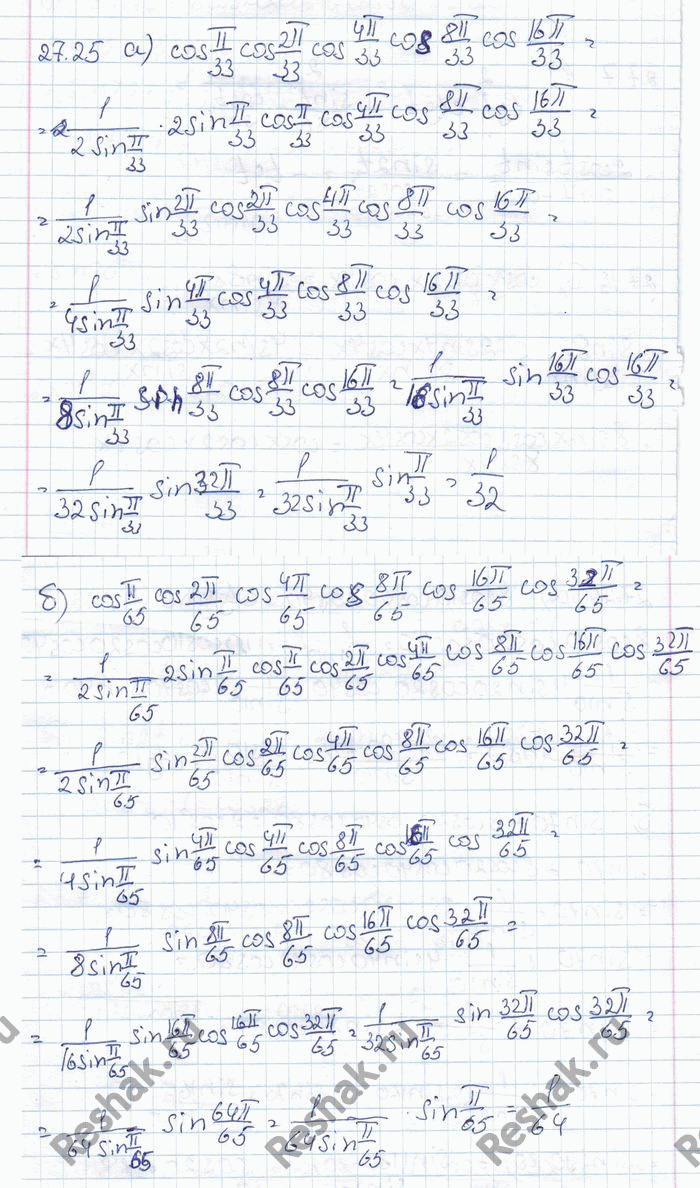 27.25 а) cos π/33 cos 2π/33 cos 4π/33 cos 8π/33 cos 16π/33 =
= 1/(2 sin π/33) · 2 sin π/33 cos π/33 cos 4π/33 cos 8π/33 cos 16π/33 =
= 1/(2 sin π/33) sin 2π/33 cos 2π/33 cos 4π/33 cos 8π/33 cos 16π/33 =
= 1/(4 sin π/33) sin 4π/33 cos 4π/33 cos 8π/33 cos 16π/33 =
= 1/(8 sin π/33) sin 8π/33 cos 8π/33 cos 16π/33 = 1/(16 sin π/33) sin 16π/33 cos 16π/33 =
= 1/(32 sin π/33) sin 32π/33 = 1/(32 sin π/33) sin π/33 = 1/32
б) cos π/65 cos 2π/65 cos 4π/65 cos 8π/65 cos 16π/65 cos 32π/65 =
= 1/(2 sin π/65) 2 sin π/65 cos π/65 cos 2π/65 cos 4π/65 cos 8π/65 cos 16π/65 cos 32π/65
= 1/(2 sin π/65) sin 2π/65 cos 2π/65 cos 4π/65 cos 8π/65 cos 16π/65 cos 32π/65 =
= 1/(4 sin π/65) sin 4π/65 cos 4π/65 cos 8π/65 cos 16π/65 cos 32π/65 =
= 1/(8 sin π/65) sin 8π/65 cos 8π/65 cos 16π/65 cos 32π/65 =
= 1/(16 sin π/65) sin 16π/65 cos 16π/65 cos 32π/65 = 1/(32 sin π/65) sin 32π/65 cos 32π/65 =
= 1/(64 sin π/65) sin 64π/65 = 1/(64 sin π/65) · sin π/65 = 1/64
Reshak.ru
Reshak.ru
Reshak.ru